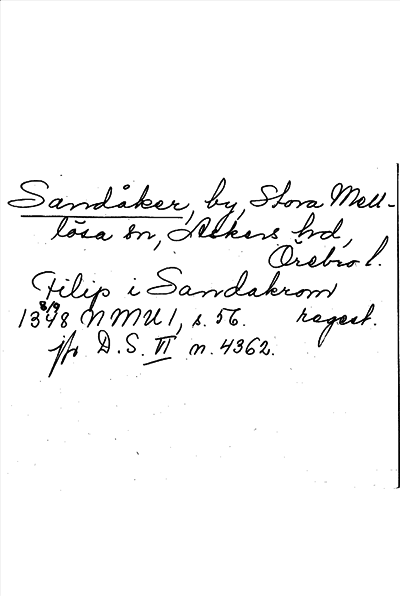 Sandåker, by, Stora Mell-
lösa sn, Askers hd,
Örebro l.
Filip i Sandakrom
8/9
1348 NMU 1, s. 56. regest.
jfr D.S. VI n. 4362.